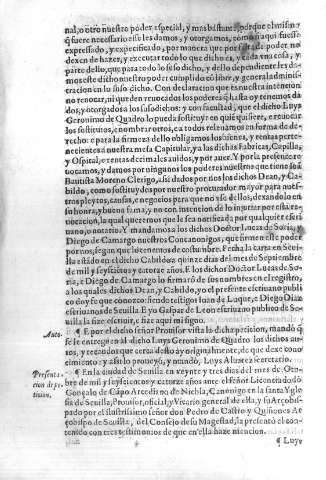 nal, o otro nuestro poder especial, y mas bastante, porque el mismo
q̃ fuere necessario esse les damos, y otorgamos, como si aqui fuesse
expressado, y especificado, por manera que por falta de poder no
dexen de hazer, y executar todo lo que dicho es, y cada vna cosa, y
parte dello, que para todo lo suso dicho, y dello dependiente les da-
mos este dicho nuestro poder cumplido cõ libre, y general adminis-
tracion en lo suso dicho. Con declaracion que es nuestra intencion
no reuocar, ni queden reuocados los poderes q̃ hasta oy tenemos da
dos, y otorgados a los susodichos: y con facultad, que el dicho Luys
Geronimo de Quadro lo pueda sostituyr en quiē quisiere, e reuocar
los sostitutos, e nombrar otros, e a todos releuamos en forma de de-
recho: e para la firmeza dello obligamos los bienes, y rentas perte-
necientes a nuestra mesa Capitular, y a las dichas Fabricas, Capilla,
y Ospital, e rentas dezimales auidos, y por auer. Y por la presente re
uocamos, y damos por ningunos los poderes nuestros que tiene
Bautista Moreno Clerigo, assi dados por nos los dichos Dean, y Ca-
bildo, como sostituydos por nuestro procurador mayor para nues-
tros pleytos, causas, e negocios para que no vse dellos, dexandolo en
su honra, y buena fama, y no con intencion de lo injuriar por esta re-
uocacion, la qual queremos que le sea notificada por qualquier escri
uano, o notario. Y mandamos a los dichos Doctor Lucas de Soria, y
Diego de Camargo nuestros Concanonigos, que firmen este poder
por nos, segun que lo tenemos de costumbre. Fecha la carta en Seui-
lla estādo en el dicho Cabildo a quinze dias del mes de Septiembre
de mil y seyscientos y catorze años. E los dichos Doctor Lucas de So-
ria, e Diego de Camargo lo firmarō de sus nombres en el registro,
a los quales dichos Dean, y Cabildo, yo el presente escriuano publi
co doy fe que conozco: siendo testigos Iuan de Luque, e Diego Diaz
escriuanos de Seuilla. E yo Gaspar de Leon escriuano publico de Se-
uilla la fize escriuir, e fize aqui mi signo.
Auto.
¶ E por el dicho señor Prouisor vista la dicha peticion, mandó q̃
se le entregue al dicho Luys Geronimo de Quadro los dichos au-
tos, y recaudos que cerca desto ay originalmente, de que dexe cono
cimiento: y assi lo proueyó, y mandó. Luys Aluarez secretario.
Presenta-
cion de pe-
ticion.
¶ En la ciudad de Seuilla en veynte y tres dias del mes de Otu-
bre de mil y seyscientos y catorze años ante el señor Licenciado dō
Gonçalo de Cāpo Arcediano de Niebla, Canonigo en la santa Ygle
sia de Seuilla, Prouisor, oficial, y Vicario general de ella, y su Arçobis-
pado por el ilustrissimo señor don Pedro de Castro y Quiñones Ar
çobispo de Seuilla, del Consejo de su Magestad, la presentó el con-
tenido con tres testimonios de que en ella haze mencion.
¶ Luys